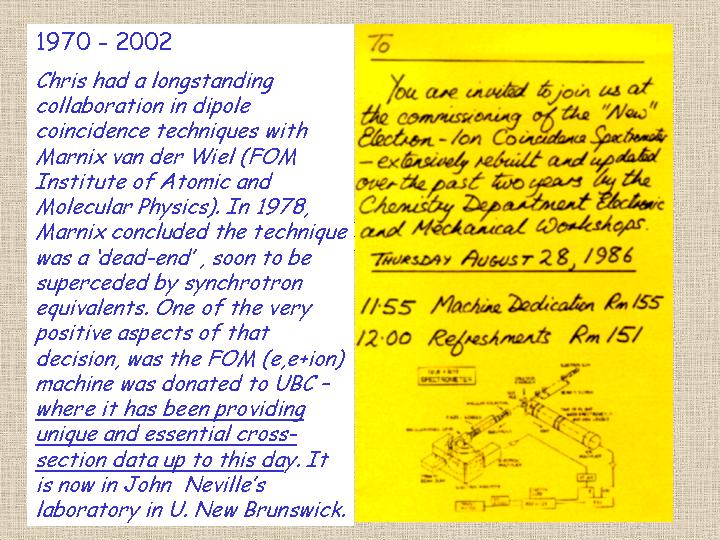 1970 - 2002
Chris had a longstanding
collaboration in dipole
coincidence techniques with
Marnix van der Wiel (FOM
Institute of Atomic and
Molecular Physics). In 1978,
Marnix concluded the technique
was a 'dead-end' , soon to be
superceded by synchrotron
equivalents. One of the very
positive aspects of that
decision, was the FOM (e,e+ion)
machine was donated to UBC –
where it has been providing
unique and essential cross-
section data up to this day. It
is now in John Neville's
laboratory in U. New Brunswick.
To
You are invited to join us at
the commissioning of the "New"
Electron-Ion Coincidence Spectrometer
- extensively rebuilt and updated
over the past two years by the
Chemistry Department Electronic
and Mechanical Workshops.
THURSDAY AUGUST 28, 1986
11:55 Machine Dedication Rm 155
12:00 Refreshments Rm 151
SPECTROMETER